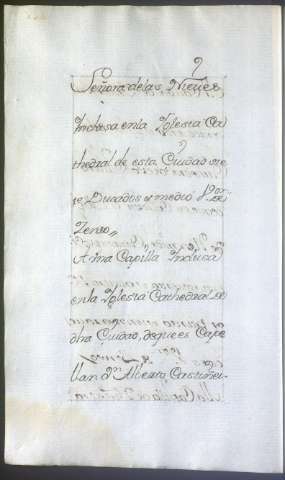 Señora delas Nieves
Inclusa enla Iglesia Ca
thedral de esta Ciudad sie
te Ducados y medio por
Zenso,,
A una Capilla Inclusa
enla Iglesia Cathedral de
dha Ciudad, de que es Cape
llan Dn. Alberto Castiñei-